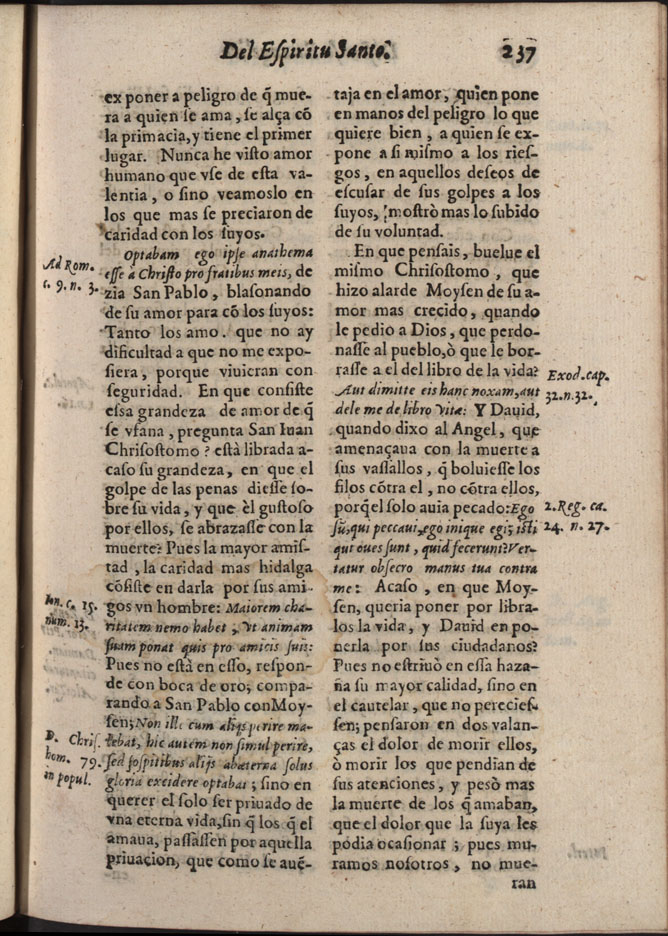 Del Eſpiritu Santo.
237
exponer a peligro de q̃ mue-
ra a quien ſe ama, ſe alça cõ
la primacia, y tiene el primer
lugar. Nunca he viſto amor
humano que vſe de eſta va-
lentia, o ſino veamoslo en
los que mas ſe preciaron de
caridad con los ſuyos.
Optabam ego ipſe anathema
eſſe á Chriſto pro fratibus meis, de
zia San Pablo, blaſonando
de ſu amor para cõ los ſuyos:
Tanto los amo. que no ay
dificultad a que no me expo-
ſiera, porque viuieran con
ſeguridad. En que conſiſte
eſſa grandeza de amor de q̃
ſe vfana, pregunta San Iuan
Chriſoſtomo? eſtà librada a-
caſo ſu grandeza, en que el
golpe de las penas dieſſe ſo-
bre ſu vida, y que èl guſtoſo
por ellos, ſe abrazaſſe con la
muerte? Pues la mayor amiſ-
tad, la caridad mas hidalga
cõſiſte en darla por ſus ami-
gos vn hombre: Maiorem cha-
ritatem nemo habet, vt animam
ſuam ponat quis pro amicis ſuis:
Pues no eſtà en eſſo, reſpon-
de con boca de oro; compa-
rando a San Pablo con Moy-
ſen; Non ille cum alijs perire ma-
lebat, hic autem non ſimul perire,
ſed ſoſpitibus alijs abæterna ſolus
gloria exeidere optabat; ſino en
querer el ſolo ſer priuado de
vna eterna vida, ſin q̃ los q̃ el
amaua, paſſaſſen por aquella
priuacion, que como ſe auẽ-
Ad Rom.
c. 9. n. 3.
Ion. c. 15.
num. 13.
D. Chriſ.
hom. 79.
in popul.
taja en el amor, quien pone
en manos del peligro lo que
quiere bien, a quien ſe ex-
pone a ſi miſmo a los rieſ-
gos, en aquellos deſeos de
eſcuſar de ſus golpes a los
ſuyos, moſtrò mas lo ſubido
de ſu voluntad.
En que penſais, buelue el
miſmo Chriſoſtomo, que
hizo alarde Moyſen de ſu a-
mor mas crecido, quando
le pedio a Dios, que perdo-
naſſe al pueblo, ò que le bor-
raſſe a el del libro de la vida?
Aut dimitte eis hanc noxam, aut
dele me de libro vitæ: Y Dauid,
quando dixo al Angel, que
amenaçaua con la muerte a
ſus vaſſallos, q̃ boluieſſe los
filos cõtra el, no cõtra ellos,
porq̃ el ſolo auia pecado: Ego
ſũ, qui peccaui, ego inique egi; iſti
qui oues ſunt, quid fecerunt? Ver-
tatur obſecro manus tua contra
me: Acaſo, en que Moy-
ſen, queria poner por libra-
los la vida, y Dauid en po-
nerla por ſus ciudadanos?
Pues no eſtriuò en eſſa haza-
ña ſu mayor calidad, ſino en
el cautelar, que no perecieſ-
ſen; penſaron en dos valan-
ças el dolor de morir ellos,
ò morir los que pendian de
ſus atenciones, y peſò mas
la muerte de los q̃ amaban,
que el dolor que la ſuya les
podia ocaſionar; pues mu-
ramos noſotros, no mue-
ran
Exod. cap.
32. n. 32.
2. Reg. ca.
24. n. 27.